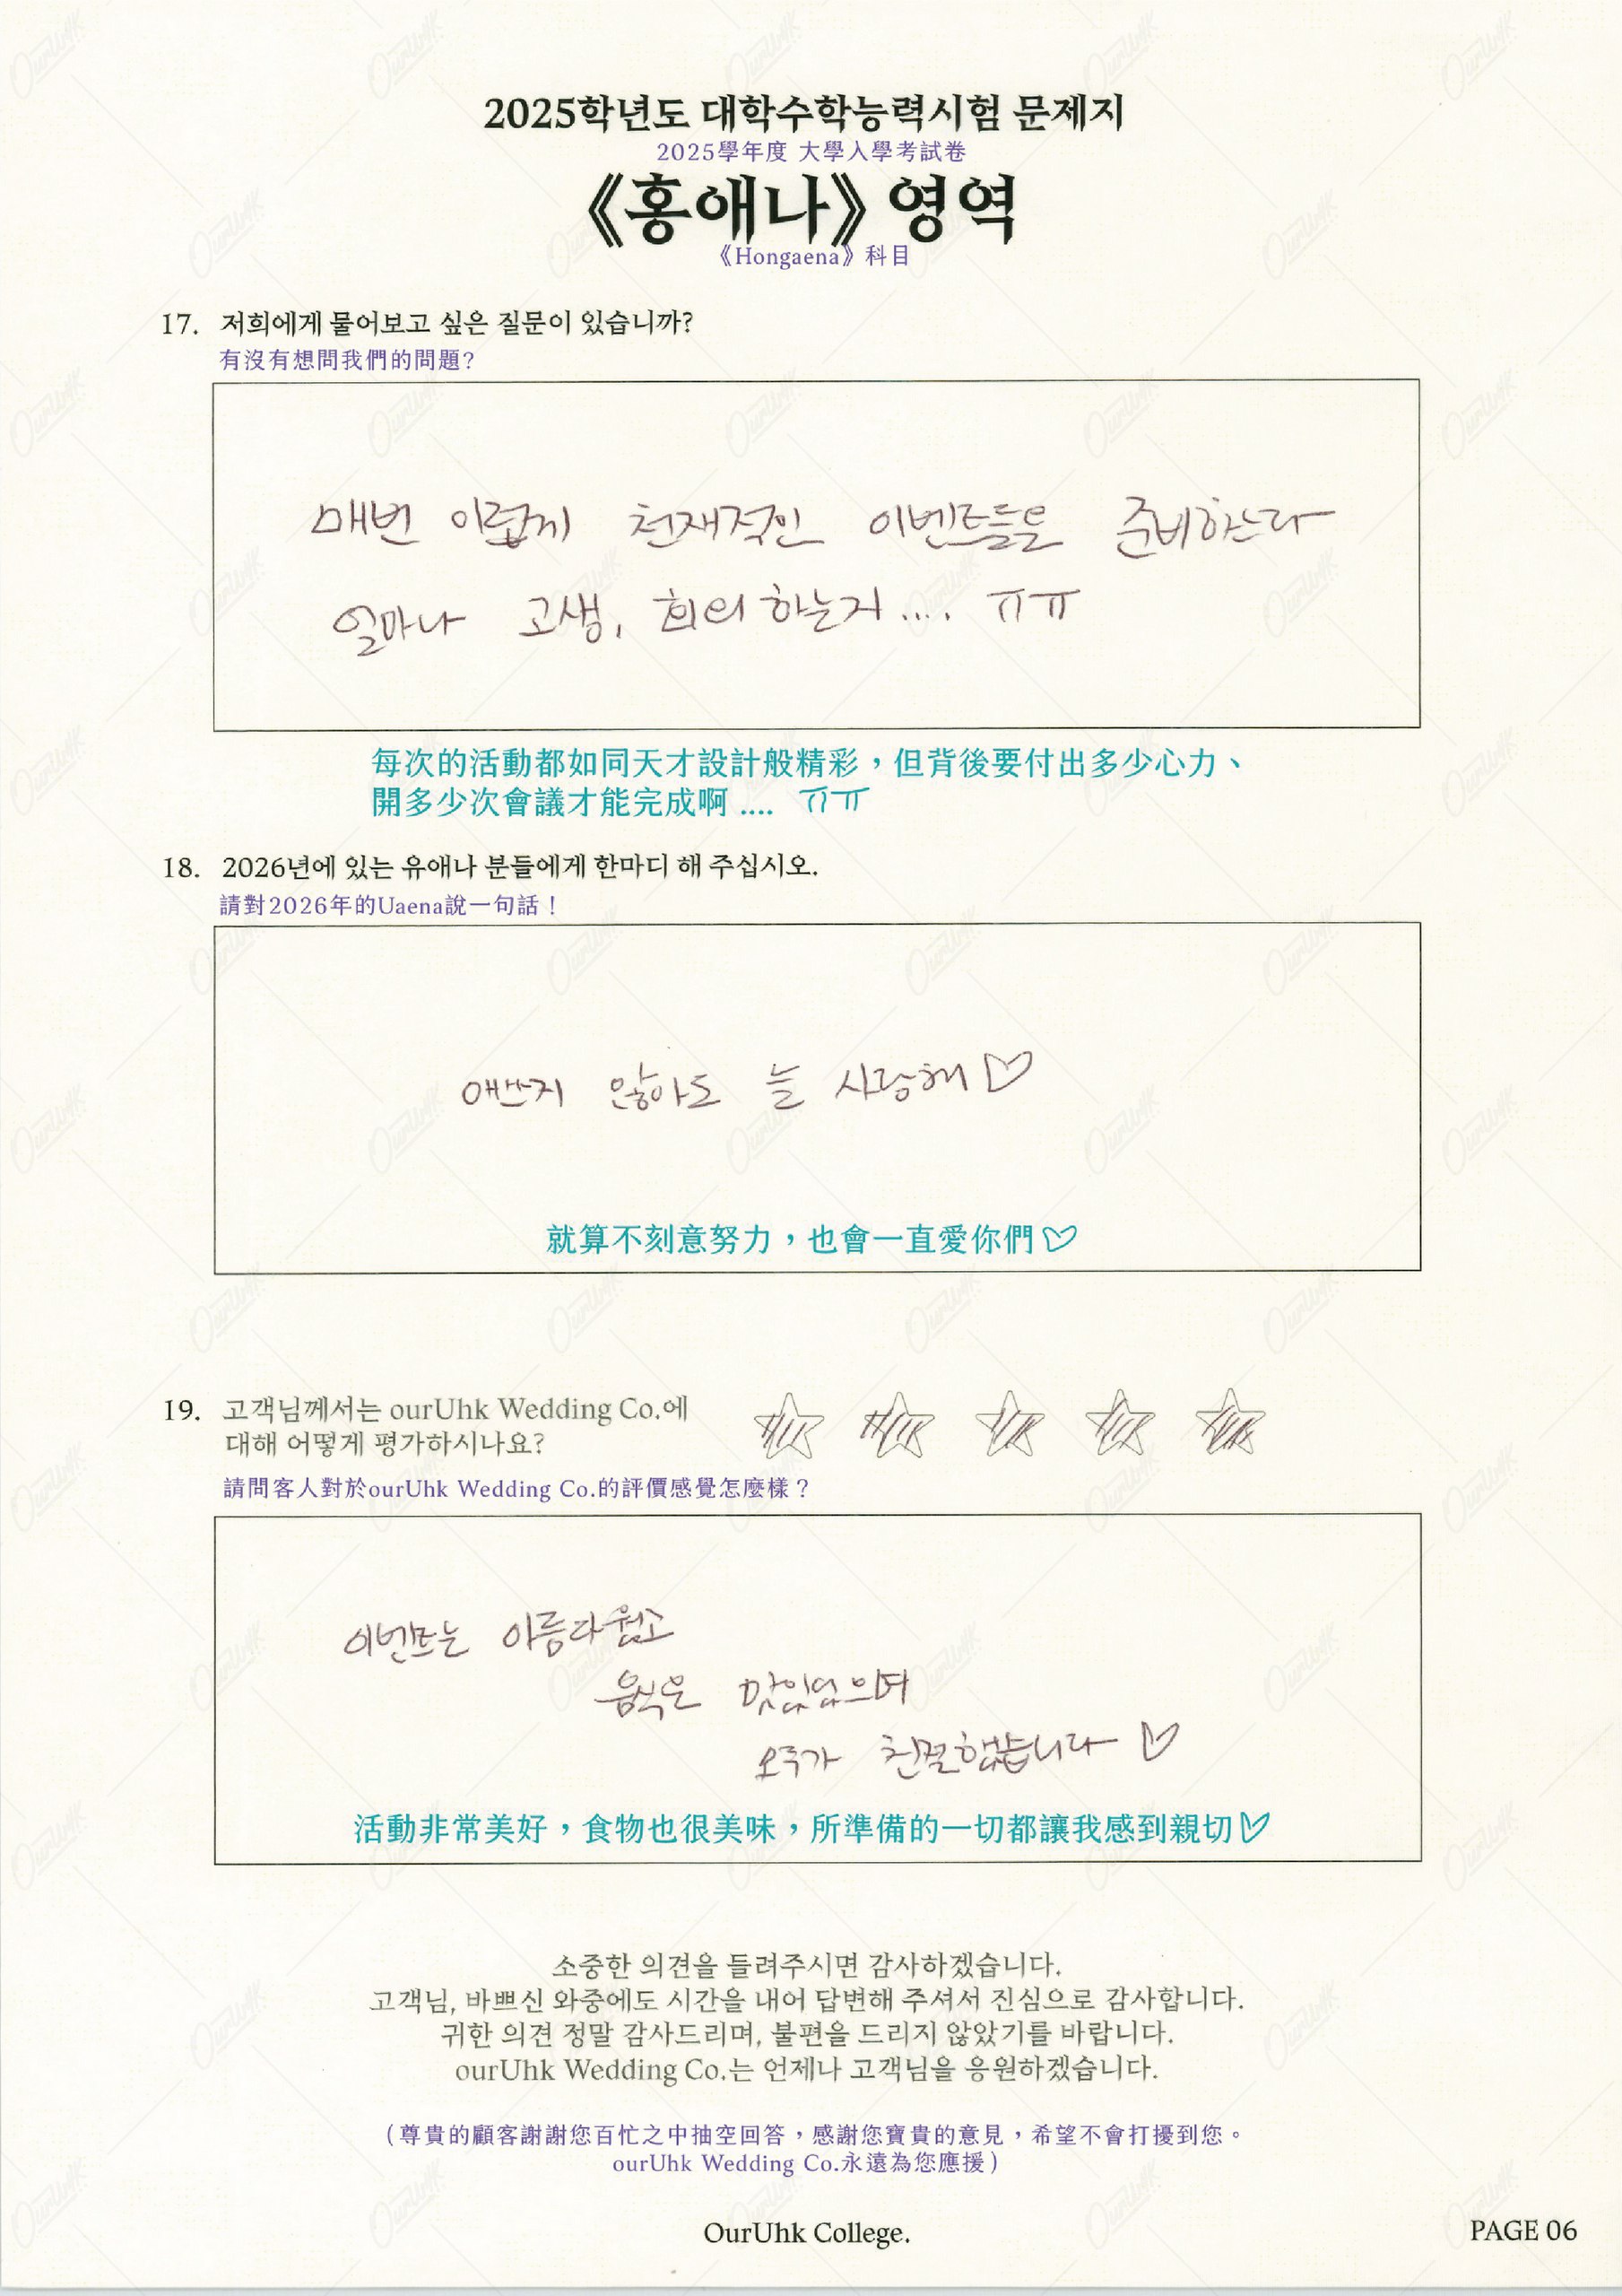 2025학년도 대학수학능력시험 문제지
2025學年度 大學入學考試卷
《홍애나》 영역
《Hongaena》科目
17. 저희에게 물어보고 싶은 질문이 있습니까?
有沒有想問我們的問題?
매번 이렇게 천재적인 이벤트들을 준비하느라
얼마나 고생, 회의 하는지.... ㅠㅠ
每次的活動都如同天才設計般精彩，但背後要付出多少心力、
開多少次會議才能完成啊 .... ㅠㅠ
18. 2026년에 있는 유애나 분들에게 한마디 해 주십시오.
請對2026年的Uaena說一句話！
애쓰지 않아도 늘 사랑해♡
就算不刻意努力，也會一直愛你們♡
19. 고객님께서는 ourUhk Wedding Co.에
대해 어떻게 평가하시나요?
請問客人對於ourUhk Wedding Co.的評價感覺怎麼樣？
이벤트는 아름다웠고
음식은 맛있었으며
모두가 친절했습니다 ♡
活動非常美好，食物也很美味，所準備的一切都讓我感到親切♡
소중한 의견을 들려주시면 감사하겠습니다.
고객님, 바쁘신 와중에도 시간을 내어 답변해 주셔서 진심으로 감사합니다.
귀한 의견 정말 감사드리며, 불편을 드리지 않았기를 바랍니다.
ourUhk Wedding Co.는 언제나 고객님을 응원하겠습니다.
(尊貴的顧客謝謝您百忙之中抽空回答，感謝您寶貴的意見，希望不會打擾到您。
ourUhk Wedding Co.永遠為您應援)
OurUhk College.
PAGE 06